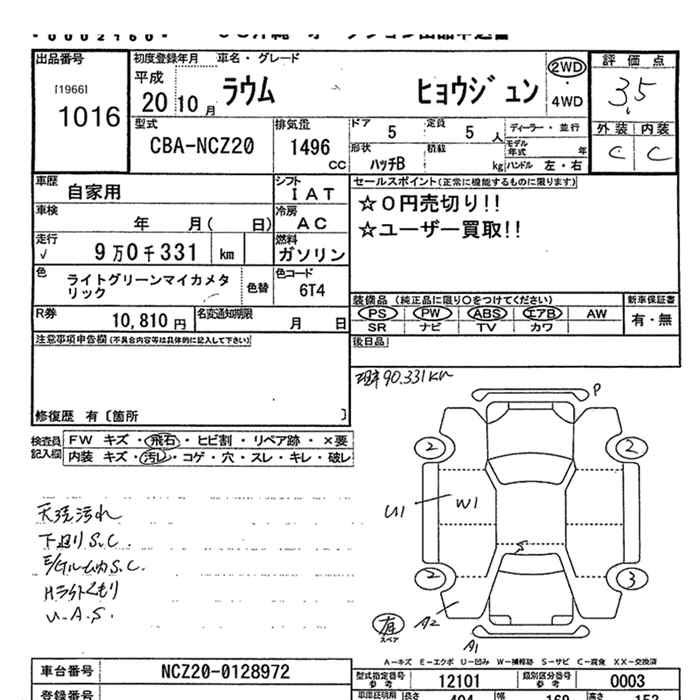 初度登録年月 車名・グレード
出品番号
[1966]
1016
平成
20 10 月
ラウム ヒョウジュン
2WD
・
4WD
評価点
3.5
外装 内装
C C
型式
CBA-NCZ20
排気量
1496
CC
ドア 5
定員 5 人
形状 ハッチB
積載 kg
ディーラー・並行
モデル年式 年
ハンドル 左・右
車歴 自家用
シフト IAT
車検 年 月( 日)
冷房 AC
走行 √ 9万0千331 km
燃料 ガソリン
色 ライトグリーンマイカメタ
リック
色替
色コード 6T4
R券 10,810 円
名変通知期限 月 日
セールスポイント(正常に機能するものに限ります)
☆0円売切り!!
☆ユーザー買取!!
装備品 (純正品に限り○をつけてください)
PS PW ABS エアB AW
SR ナビ TV カワ
新車保証書
有・無
後日品
注意事項申告欄(不具合内容等は具体的に記入して下さい)
修復歴 有〔箇所 〕
検査員記入欄
FW キズ・飛石・ヒビ割・リペア跡・×要
内装 キズ・汚レ・コゲ・穴・スレ・キレ・破レ
現車90.331km
P
2 2
U1 W1
S
2 3
A2
A1
有
スペア
下廻りS.C.
E/Gルーム内S.C.
Hライトくもり
U.A.S.
A-キズ E-エクボ U-凹み W-補修跡 S-サビ C-腐食 XX-交換済
車台番号 NCZ20-0128972
型式指定番号 参考 12101
類別区分番号 参考 0003
登録番号